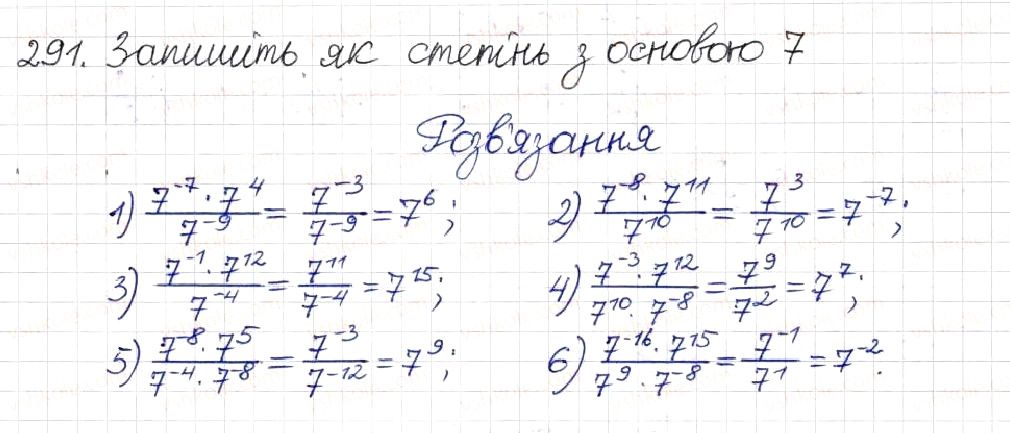 291. Запишіть як степінь з основою 7
Розв'язання
1) \frac{7^{-7} \cdot 7^4}{7^{-9}} = \frac{7^{-3}}{7^{-9}} = 7^6; 2) \frac{7^{-8} \cdot 7^{11}}{7^{10}} = \frac{7^3}{7^{10}} = 7^{-7};
3) \frac{7^{-1} \cdot 7^{12}}{7^{-4}} = \frac{7^{11}}{7^{-4}} = 7^{15}; 4) \frac{7^{-3} \cdot 7^{12}}{7^{10} \cdot 7^{-8}} = \frac{7^9}{7^2} = 7^7;
5) \frac{7^{-8} \cdot 7^5}{7^{-4} \cdot 7^{-8}} = \frac{7^{-3}}{7^{-12}} = 7^9; 6) \frac{7^{-16} \cdot 7^{15}}{7^9 \cdot 7^{-8}} = \frac{7^{-1}}{7^1} = 7^{-2}.